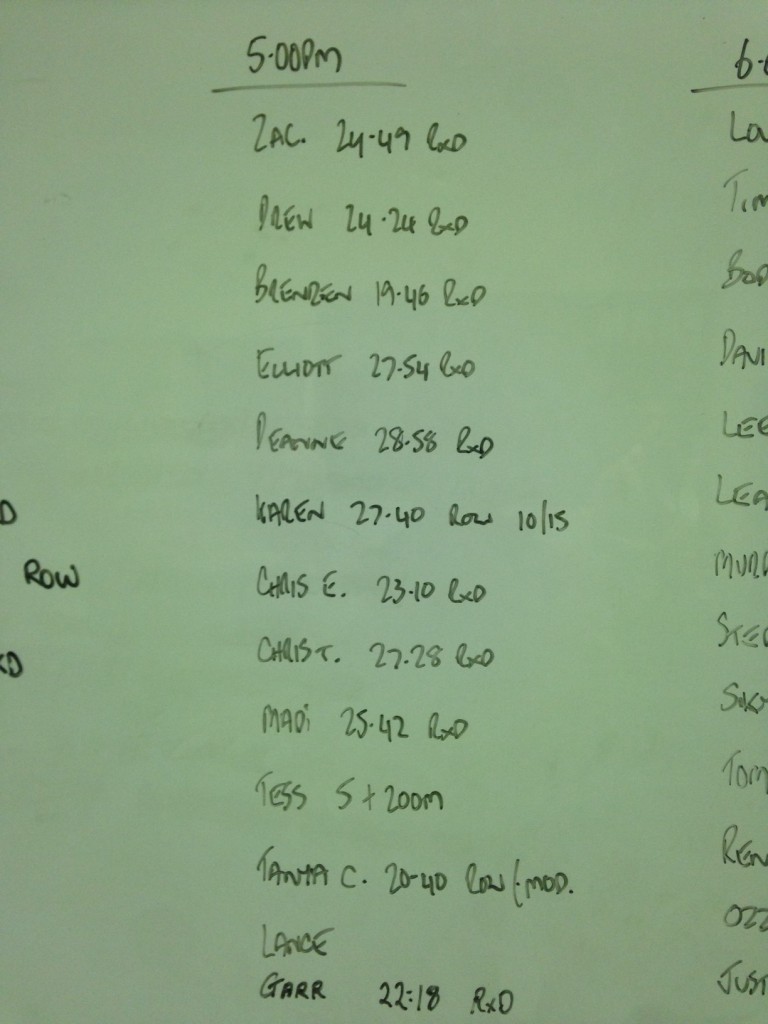 5.00PM
ZAC. 24-49 RxD
DREW 24.24 RxD
BRENDEN 19.46 RxD
ELLIOTT 27.54 RxD
DEANNE 28.58 RxD
KAREN 27.40 ROW 10/15
CHRIS E. 23.10 RxD
CHRIS T. 27.28 RxD
MADi 25.42 RxD
TESS 5 + 200m
TANYA C. 20-40 ROW (-MOD.
LANCE
GARR 22:18 RxD
D
ROW
XD
6.
LOU
TIM
BOD
DAVI
LEE
LEA
MURR
STE
TOM
REN
OZZ
JUST